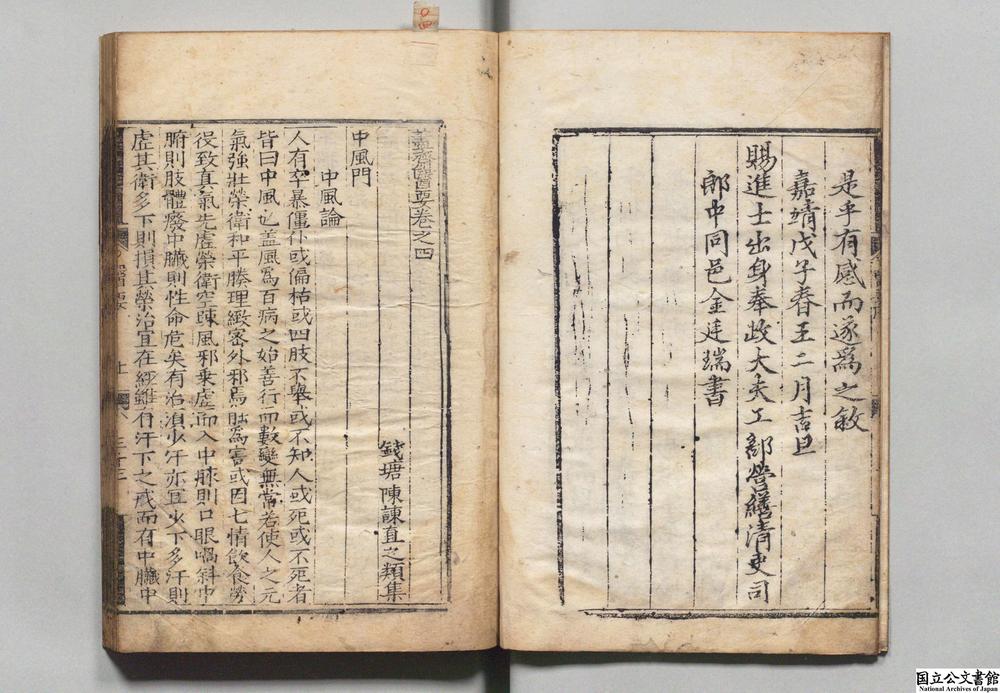 是乎有感而遂爲之敘
嘉靖戊子春王二月吉旦
賜進士出身奉政大夫工部營繕清吏司
郎中同邑金廷瑞書
藎齋醫要卷之四
錢塘陳諫直之類集
中風門
中風論
人有卒暴僵仆或偏枯或四肢不舉或不知人或死或不死者
皆曰中風也盖風爲百病之始善行而數變無常若使人之元
氣強壯榮衛和平腠理緻密外邪焉能爲害或因七情飲食勞
役致真氣先虛榮衛空踈風邪乗虛而入中腑則口眼喎斜中
腑則肢體癈中臟則性命危矣有治湏少汗亦宜少下多汗則
虛其衛多下則損其榮治宜在經雖有汗下之戒而有中臟中
醫要
国立公文書館
National Archives of Japan